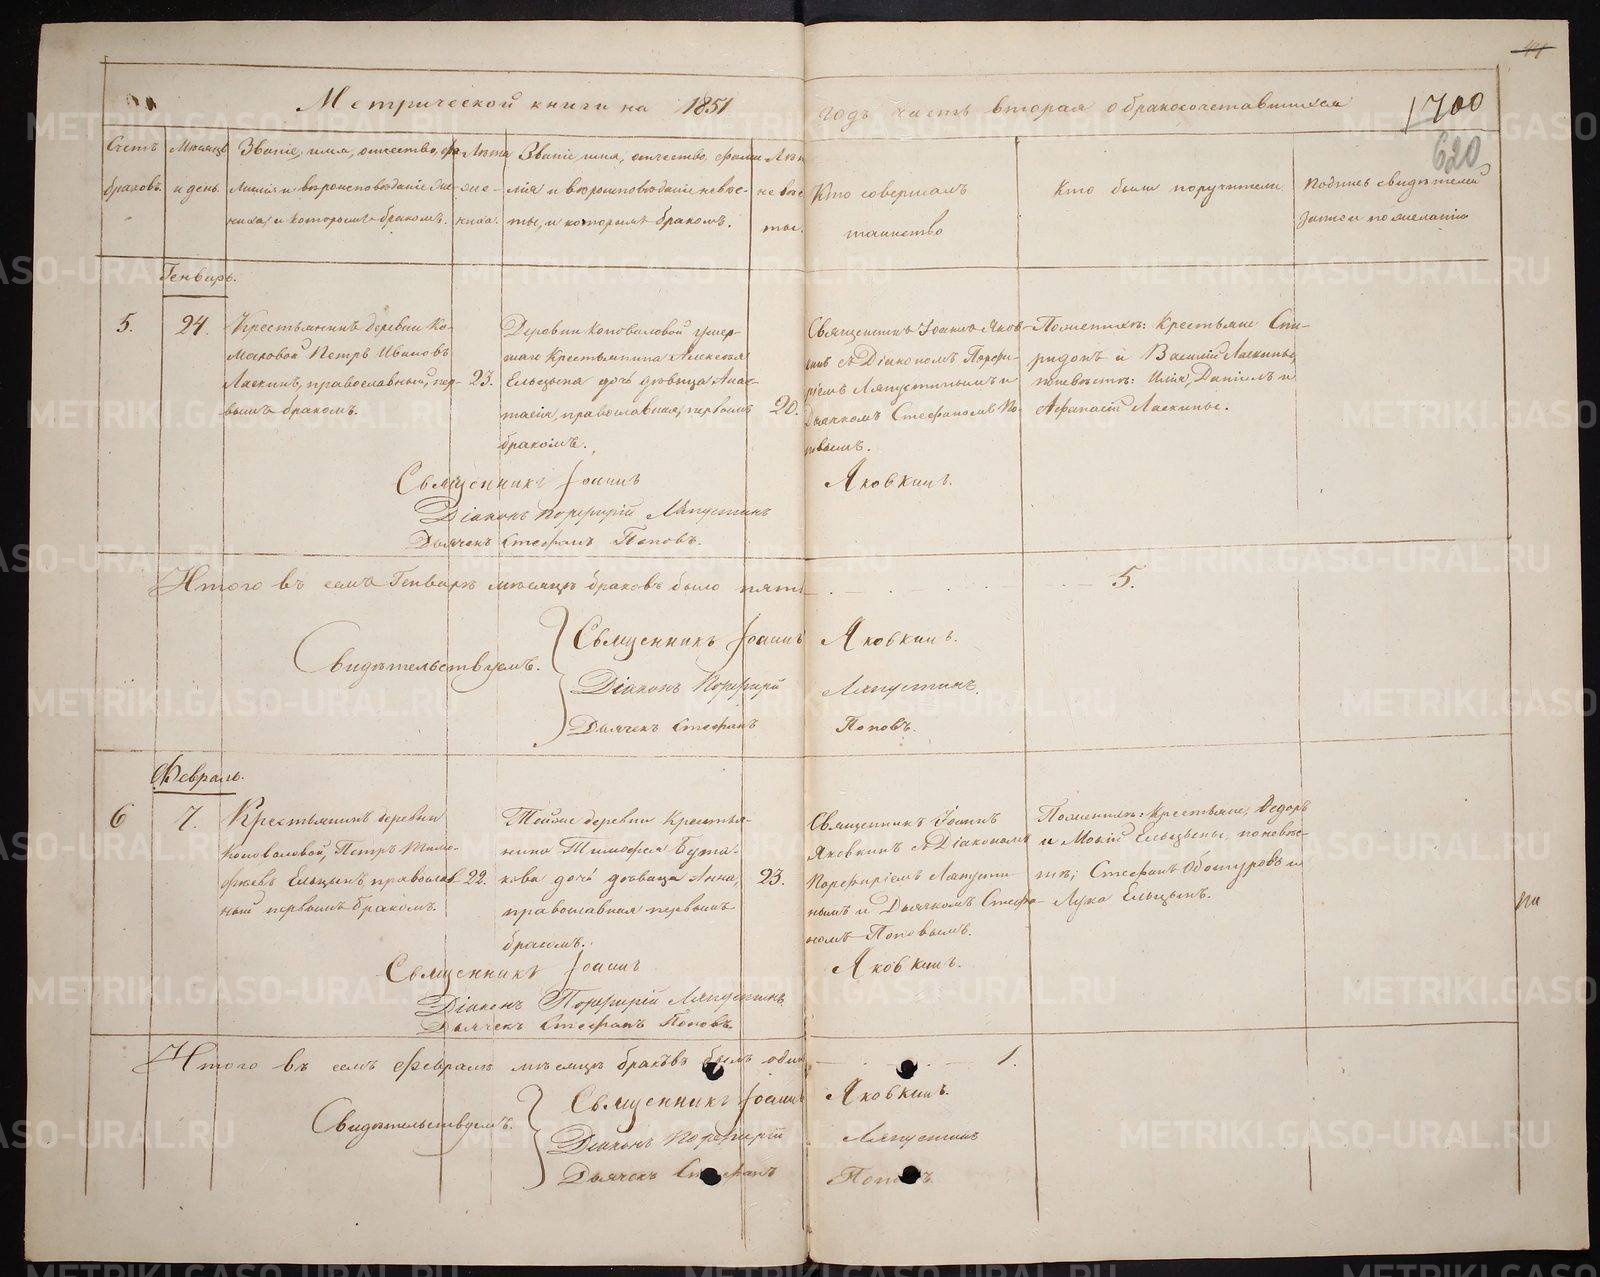 41
Метрической книги на 1851 годъ часть вторая о бракосочетавшихся
1700
620
Счетъ браковъ.
Мѣсяцъ и день.
Званіе, имя, отчество, фа-
милія и вѣроисповѣданіе же-
ниха, и которымъ бракомъ.
Лѣта
же-
ниха.
Званіе имя, отчество, фами-
лія и вѣроисповѣданіе невѣс-
ты, и которымъ бракомъ.
Лѣта
невѣс
ты.
Кто совершалъ
таинство
Кто были поручители
Подпись свидѣтелей
записи по желанію
Генварь.
5.
24.
Крестьянинъ деревни Ко-
Петръ Ивановъ
Ласкинъ, православный, пер-
вымъ бракомъ.
23.
Деревни Коноваловой умер-
шаго Крестьянина Алексея
Ельцына дочь дѣвица Анас-
тасія, православная, первымъ
бракомъ.
20.
Священникъ Іоаннъ Яков-
кинъ съ Діакономъ Порфи-
ріемъ Ляпустинымъ и
Дьячкомъ Стефаномъ По-
повымъ.
По женихѣ: Крестьяне Спи-
ридонъ и Василій Ласкины,
по невѣстѣ: Илія, Даніилъ и
Афанасій Ласкины.
Священникъ Іоаннъ Яковкинъ.
Діаконъ Порфирій Ляпустинъ
Дьячекъ Стефанъ Поповъ.
Итого въ семъ Генварѣ мѣсяцѣ браковъ было пять 5.
Свидѣтельствуемъ.
Священникъ Іоаннъ Яковкинъ.
Діаконъ Порфирій Ляпустинъ.
Дьячекъ Стефанъ Поповъ.
Февраль.
6
7.
Крестьянинъ деревни
Коноваловой, Петръ Тимо-
феевъ Ельцынъ, православ-
ный первымъ бракомъ.
22.
Тойже деревни Крестья-
нина Тимофея Бута-
кова дочь дѣвица Анна,
православная первымъ
бракомъ.
23.
Священникъ Іоаннъ
Яковкинъ съ Діакономъ
Порфиріемъ Ляпусти-
нымъ и Дьячкомъ Стефа-
номъ Поповымъ.
По женихѣ: Крестьяне, Федоръ
и Ельцыны, по невѣс-
тѣ; Стефанъ и
Лука Ельцынъ.
Священникъ Іоаннъ Яковкинъ.
Діаконъ Порфирій Ляпустинъ
Дьячекъ Стефанъ Поповъ.
Итого въ семъ Февралѣ мѣсяцѣ браковъ былъ одинъ 1.
Свидѣтельствуемъ.
Священникъ Іоаннъ Яковкинъ.
Діаконъ Порфирій Ляпустинъ
Дьячекъ Стефанъ Поповъ.
METRIKI.GASO-URAL.RU